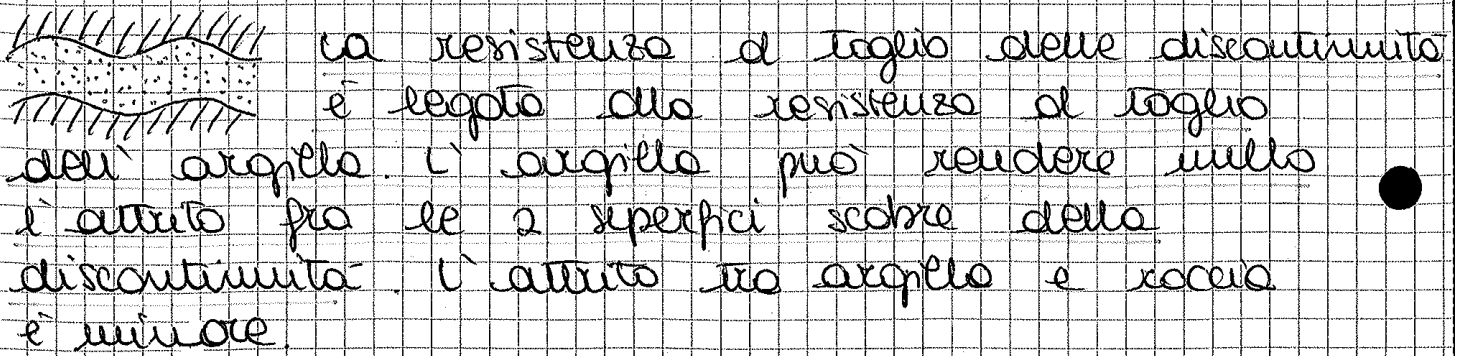 La resistenza al taglio delle discontinuità
è legata alla resistenza al taglio
dell'argilla. L'argilla può rendere nullo
l'attrito fra le 2 superfici scabre della
discontinuità. L'attrito tra argilla e roccia
è minore.